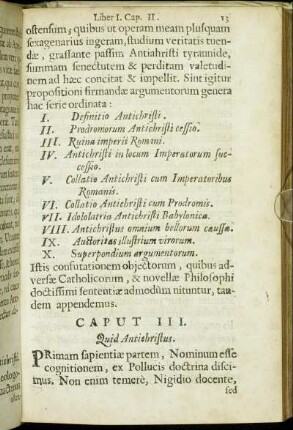 Liber I. Cap. II. 13
ostensum; quibus ut operam meam plusquam
sexagenarius ingeram, studium veritatis tuen-
dæ, grassante passim Antichristi tyrannide,
summam senectutem & perditam valetudi-
nem ad hæc concitat & impellit. Sint igitur
propositioni firmandæ argumentorum genera
hac serie ordinata:
I. Definitio Antichristi.
II. Prodromorum Antichristi cessio.
III. Ruina imperii Romani.
IV. Antichristi in locum Imperatorum suc-
cessio.
V. Collatio Antichristi cum Imperatoribus
Romanis.
VI. Collatio Antichristi cum Prodromis.
VII. Idololatria Antichristi Babylonica.
VIII. Antichristus omnium bellorum caussa.
IX. Auctoritas illustrium virorum.
X. Superpondium argumentorum.
Istis confutationem objectorum, quibus ad-
versæ Catholicorum, & novellæ Philosophi
doctissimi sententiæ admodùm nituntur, tan-
dem appendemus.
CAPUT III.
Quid Antichristus.
PRimam sapientiæ partem, Nominum esse
cognitionem, ex Pollucis doctrina disci-
mus. Non enim temerè, Nigidio docente,
sed